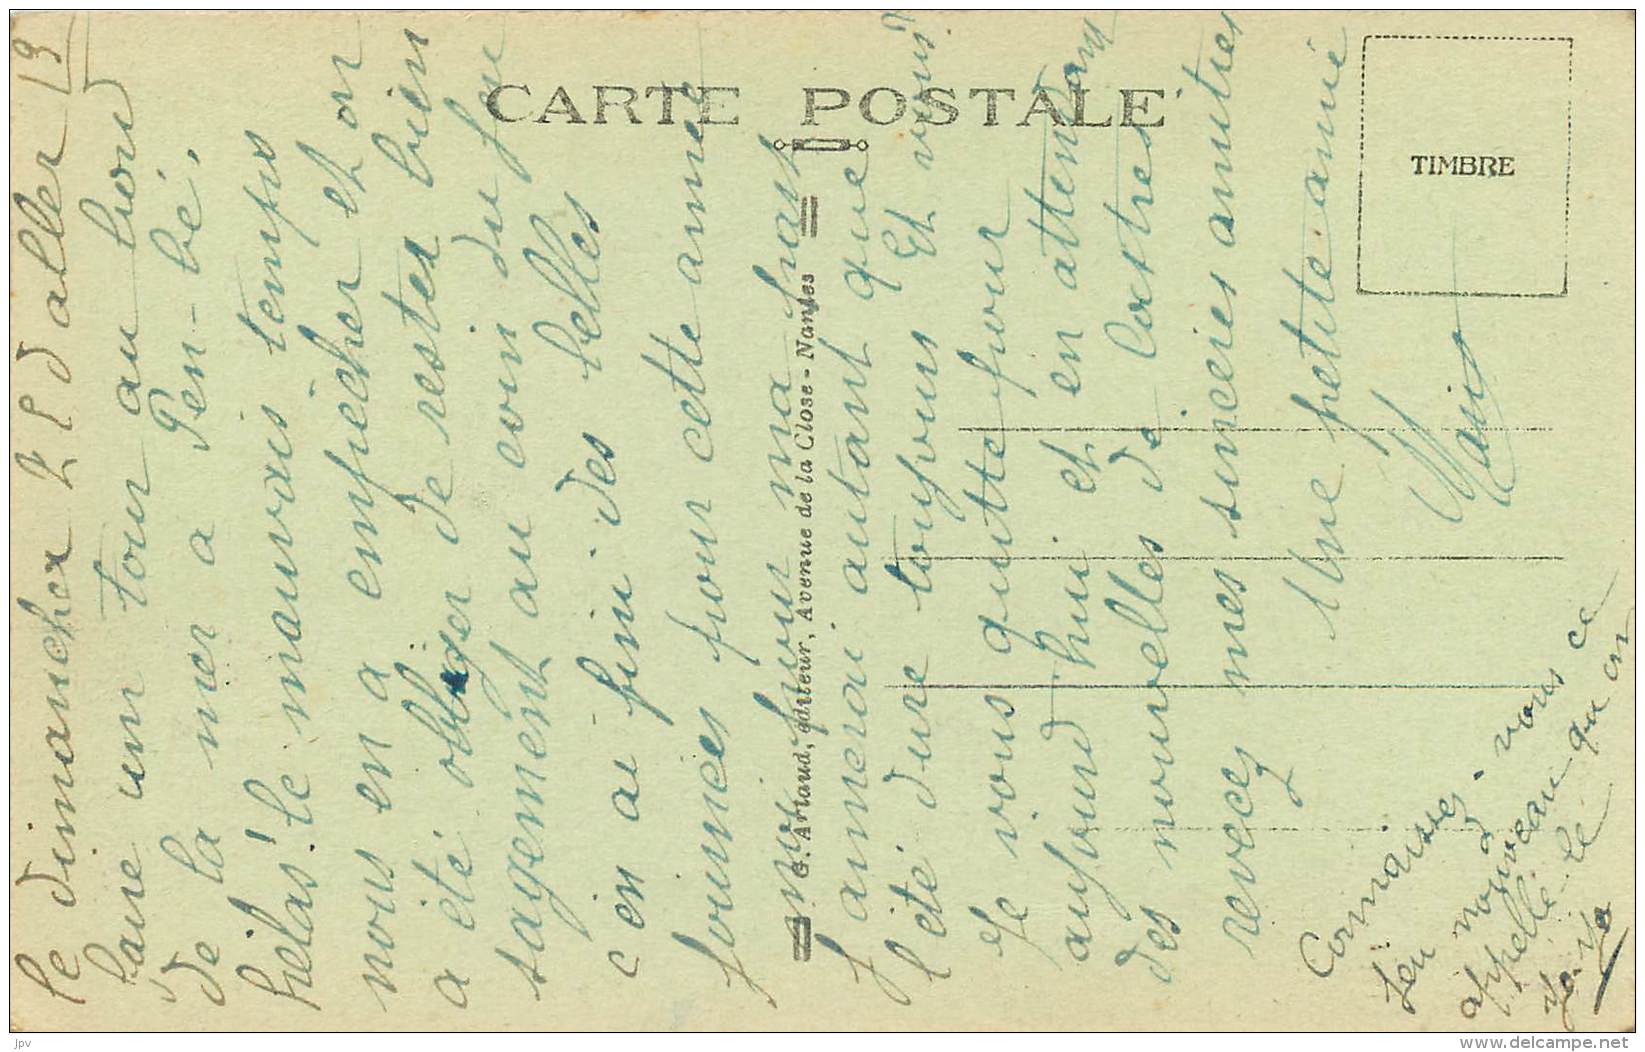 CARTE POSTALE
TIMBRE
G. Artaud, éditeur, Avenue de la Close - Nantes
le dimancher 21 d aller
faire un tour au bord
de la mer a Pen-bé,
hélas! le mauvais temps
nous en a empécher et on
a été obliger de rester bien
sagement au coin du feu
c en ai fini des belles
journées pour cette année
moi pour ma part
j aimerai autant que
l'été dure toujours Et vous?
Je vous quitte pour
aujourd hui et en attendant
des nouvelles de Castres
recevez mes sinceres amitiés
Une petite amie
Connaissez-vous ce
jeu nouveau qu on
appelle le
yo-yo
delcampe.net
jpv